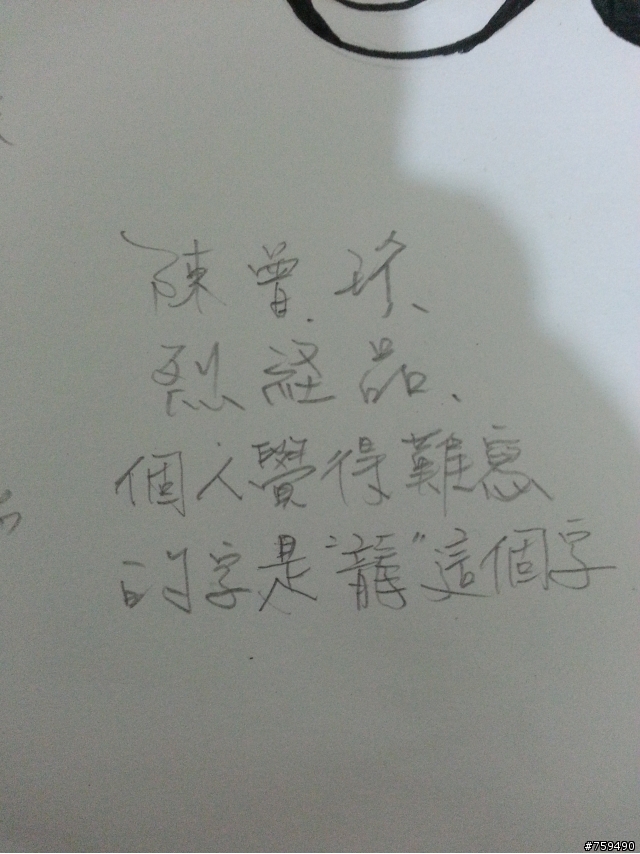 陳曾珍、
烈経品、
個人覺得難寫
的字是"龍"這個字
#759490